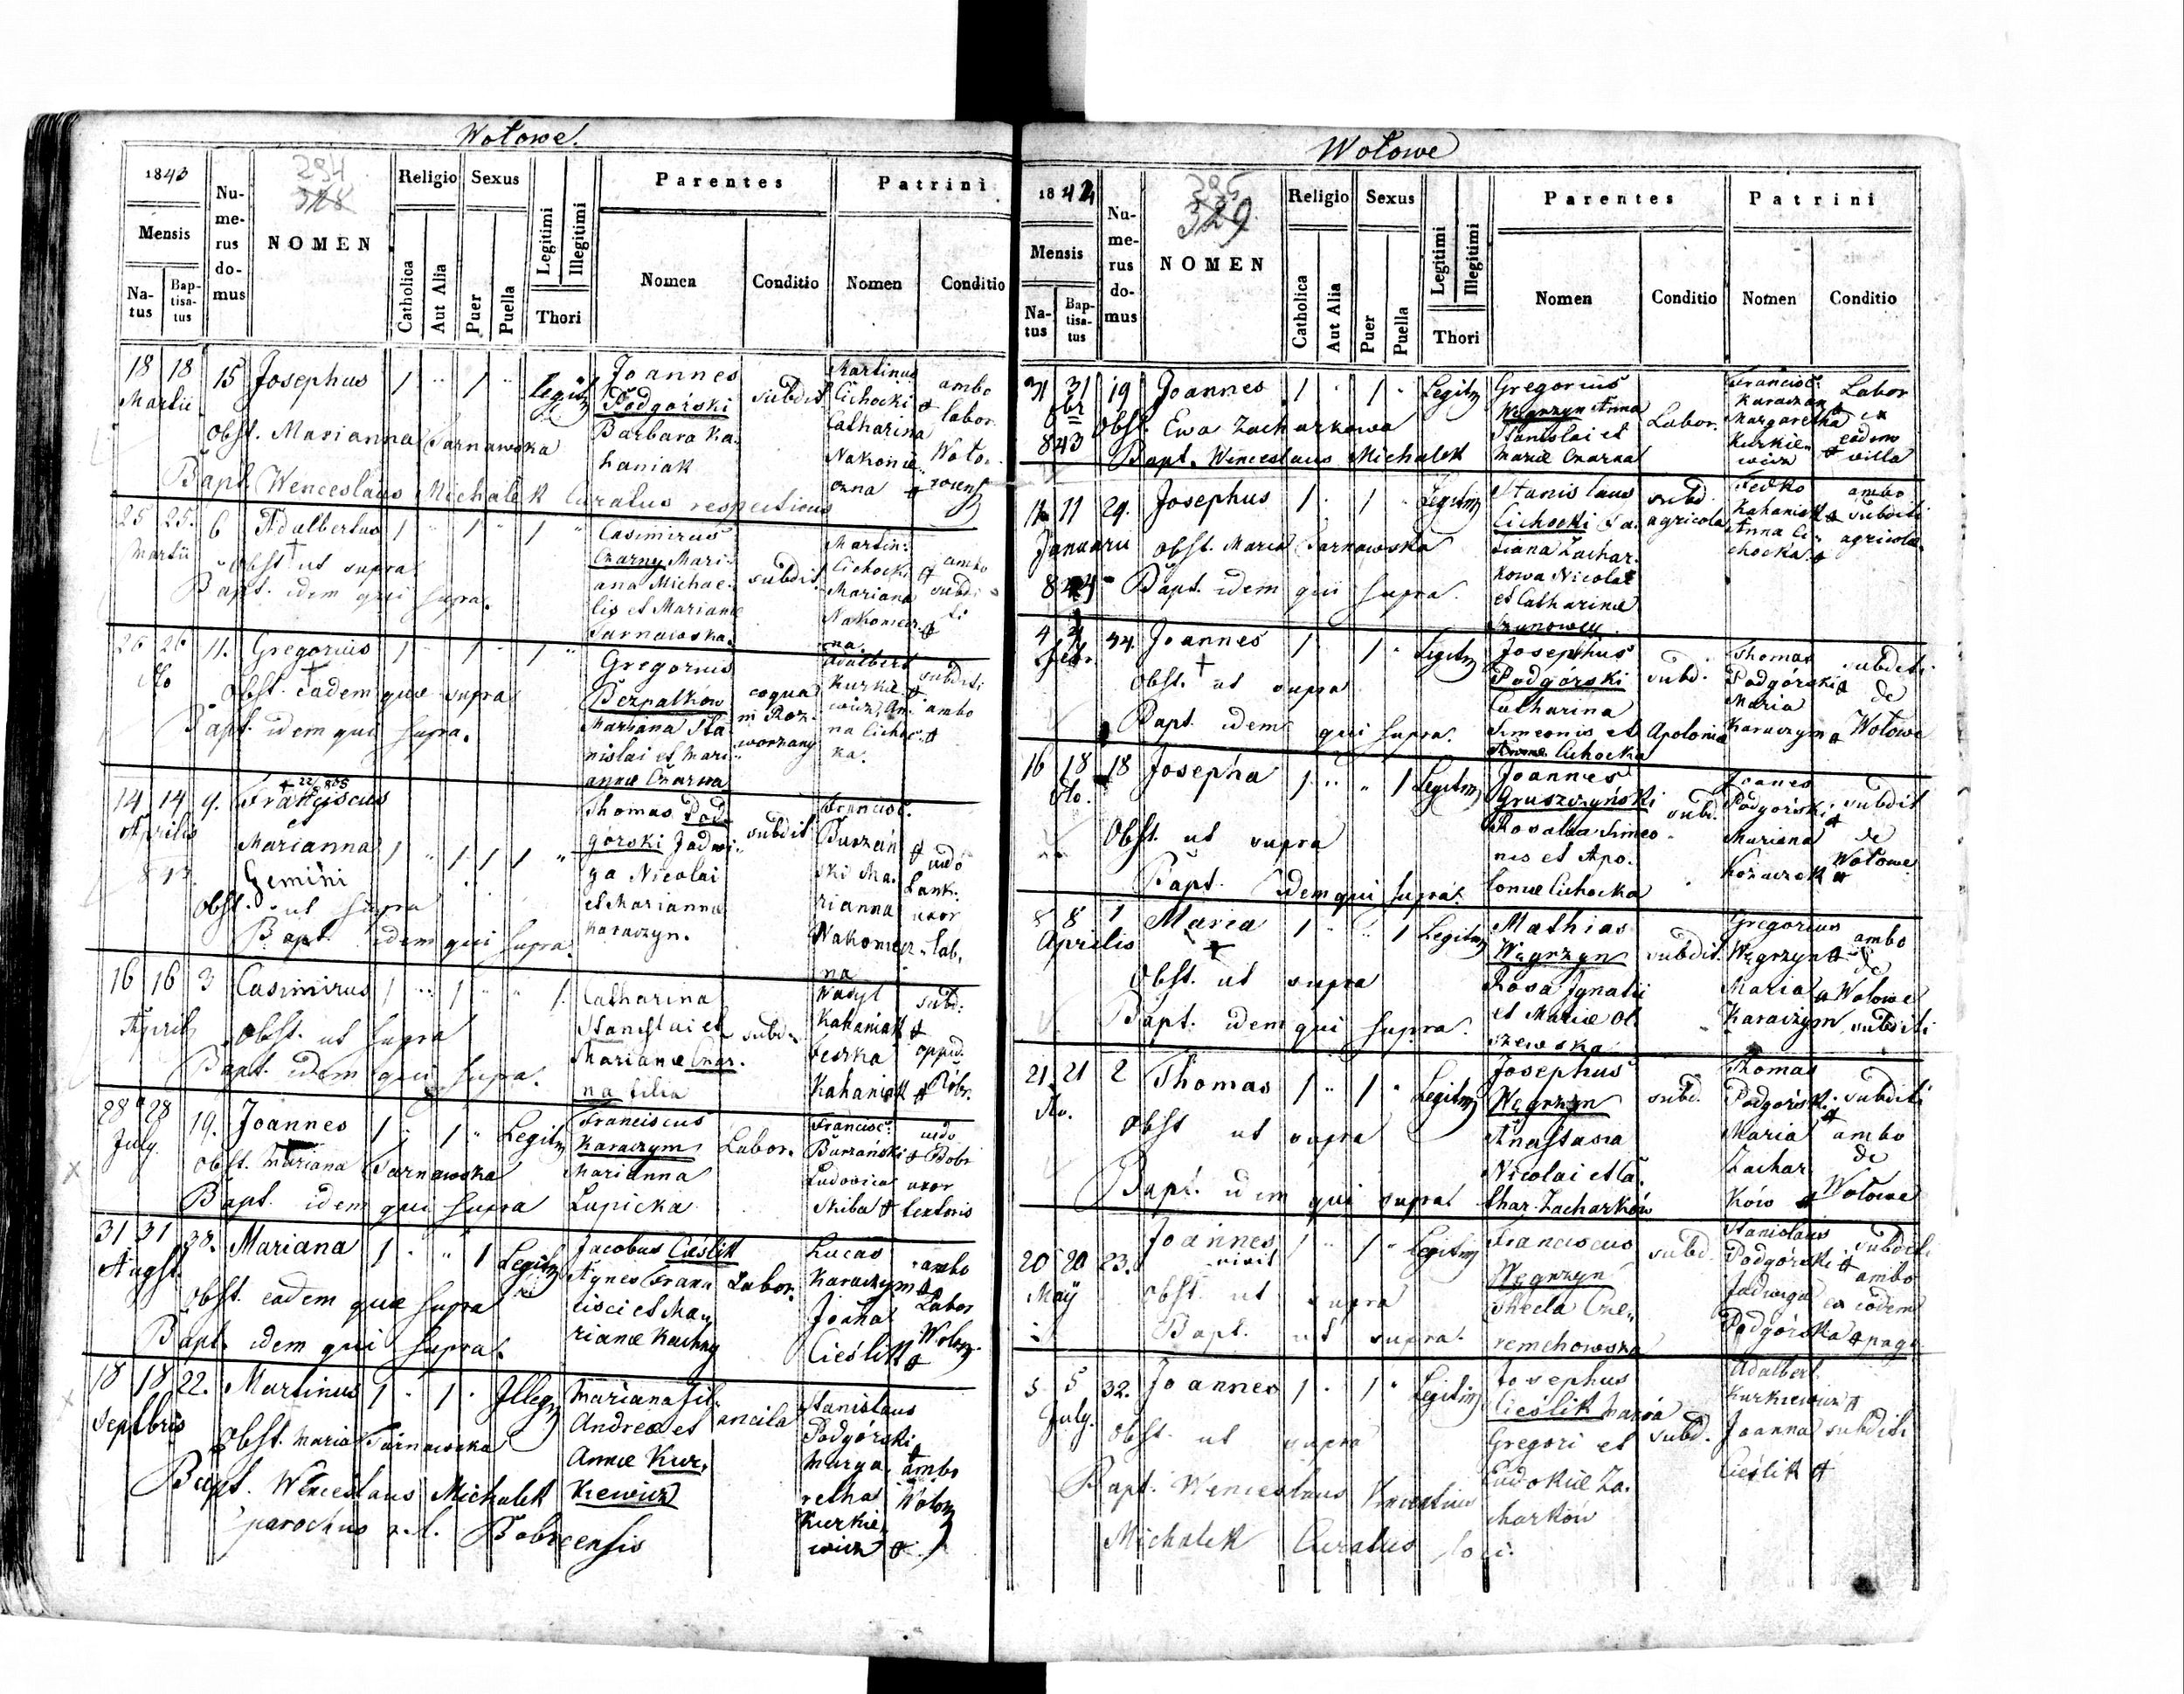 Wołowe.
1843
Mensis
Na-
tus
Bap-
tisa-
tus
Nu-
me-
rus
do-
mus
294
328
NOMEN
Religio
Catholica
Aut Alia
Sexus
Puer
Puella
Legitimi
Illegitimi
Thori
Parentes
Nomen
Conditio
Patrini
Nomen
Conditio
18 18 15 Josephus 1 " 1 " Legit
Martii
Obst. Marianna Tarnawska
Bapt. Wenceslaus Michalek Curatus respectivus
Joannes
Podgórski
Barbara Ka-
haniak
subdit
Martinus
Cichocki
Catharina
Nakonie
czna
ambo
labor.
25 25. 6 Adalbertus 1 " 1 " 1 "
Martii
Obst ut supra
Bapt. idem qui supra.
Casimirus
Czarny Mari-
ana Michae-
lis et Mariannae
Tarnawska.
subdit.
Martin:
Cichocki
Mariana
Nakonecz-
na.
ambo
subdi-
ti
26 26 11. Gregorius 1 " 1 " 1 "
Obst. eadem quae supra
Bapt. idem qui supra.
Gregorius
Bezpalkow
Mariana Sta
nislai et Mari-
annae Czarna
Adalbert
Kurkie
wicz, An-
na Cichoc-
ka.
subditi
ambo
14 14 9. Franciscus
Aprilis
et
Marianna 1 " 1 1 1 "
Gemini
Obst. ut supra
Bapt. idem qui supra.
Thomas Pod-
górski Jadwi-
ga Nicolai
et Marianna
Karaczyn.
subdit
Francisc.
Burzań
ski Ma-
rianna
Nakonecz-
na
uxor
lab.
16 16 3 Casimirus 1 " 1 " " 1.
April
Obst. ut supra
Bapt. idem qui supra.
Catharina
Stanislai et
Marianae Czar-
na filia
subd.
Wasyl
Kahaniak
Teszka
Kahaniak
subd.
oppid.
Bobr.
28 28 19. Joannes 1 " 1 " Legitm
July
Obst. Mariana Tarnawska
Bapt. idem qui supra
Franciscus
Karaczym
Marianna
Lupicka
Labor.
Francisc.
Burzański
Ludovica
Skiba
Bobr
uxor
textoris
31 31 38. Mariana 1 " " 1 Legitm
Augst.
Obst. eadem quae supra
Bapt. idem qui supra.
Jacobus Cieślik
Agnes Fran
cisci et Ma-
rianae Kachny
Labor.
Lucas
Karaczym
Joana
Cieślik
ambo
Labor
Wołow
18 18 22. Martinus 1 " 1 " Illeg
Septbris
Obst. Maria Tarnawska
Bapt. Wenceslaus Michalek
parochus r. l. Bobrcensis
Mariana fil.
Andreae et
Annae Kur-
kiewicz
ancila
Stanislaus
Podgórski
Marga-
retha
Kurkie
wicz
ambo
Wołow
Wołowe
1842
Mensis
Na-
tus
Bap-
tisa-
tus
Nu-
me-
rus
do-
mus
295
329
NOMEN
Religio
Catholica
Aut Alia
Sexus
Puer
Puella
Legitimi
Illegitimi
Thori
Parentes
Nomen
Conditio
Patrini
Nomen
Conditio
31 31 19 Joannes 1 " 1 " Legitm
8br
843
Obst. Ewa Zacharkowa
Bapt. Wenceslaus Michalek
Gregorius
Węgrzyn Anna
Stanislai et
Mariae Czarna
Labor.
Francisc.
Karaczym
Margaretha
Kurkie-
wicz
Labor
ex
eadem
villa
11 11 29. Josephus 1 " 1 " Legitm
Januarii
Obst. Maria Tarnawska
Bapt. idem qui supra.
Stanislaus
Cichocki Ta-
tiana Zachar-
kowa Nicolai
et Catharinae
subd.
agricola
Fedko
Kahaniak
Anna Ci-
chocka
ambo
subditi
agricolae
4 4 44. Joannes 1 " 1 " Legitm
Febr.
Obst. ut supra
Bapt. idem qui supra.
Josephus
Podgórski
Catharina
Simeonis et Apolonia
Cichocka
subd.
Thomas
Podgórski
Maria
Karaczym
subditi
de
Wołowe
16 18 18 Josepha 1 " " 1 Legitm
Obst. ut supra
Bapt. idem qui supra.
Joannes
Gruszczyński
Rosalia Simeo-
nis et Apo-
loniae Cichocka
subd.
Joanes
Podgórski
Mariana
Kozaczek
subdit
de
Wołowe
8 8 1 Maria 1 " " 1 Legitm
Aprilis
Obst. ut supra
Bapt. idem qui supra.
Mathias
Węgrzyn
Rosa Ignatii
et Mariae Ol-
szewska
subdit.
Gregorius
Węgrzyn
Maria
Karaczym
ambo
de
Wołowe
subditi
21 21 2 Thomas 1 " 1 " Legitm
Obst ut supra
Bapt. idem qui supra
Josephus
Węgrzyn
Anastasia
Nicolai et Ca-
thar. Zacharków
subd.
Thomas
Podgórski
Maria
Zachar
ków
subditi
ambo
de
Wołowe
20 20 23. Joannes 1 " 1 " Legitm
vivit
Maÿ
Obst. ut supra
Bapt. ut supra.
Franciscus
Węgrzyn
Thecla Cze-
remchowska
subd.
Stanislaus
Podgórski
Jadwiga
Podgórska
subditi
ambo
ex eodem
pago
5 5 32. Joannes 1 " 1 " Legitim
July.
Obst. ut supra
Bapt. Wenceslaus
Michalek Curatus loci.
Josephus
Cieślik Maria
Gregori et
Eudokiae Za-
charków
subd.
Adalbert
Kurkiewicz
Joanna
Cieślik
subditi